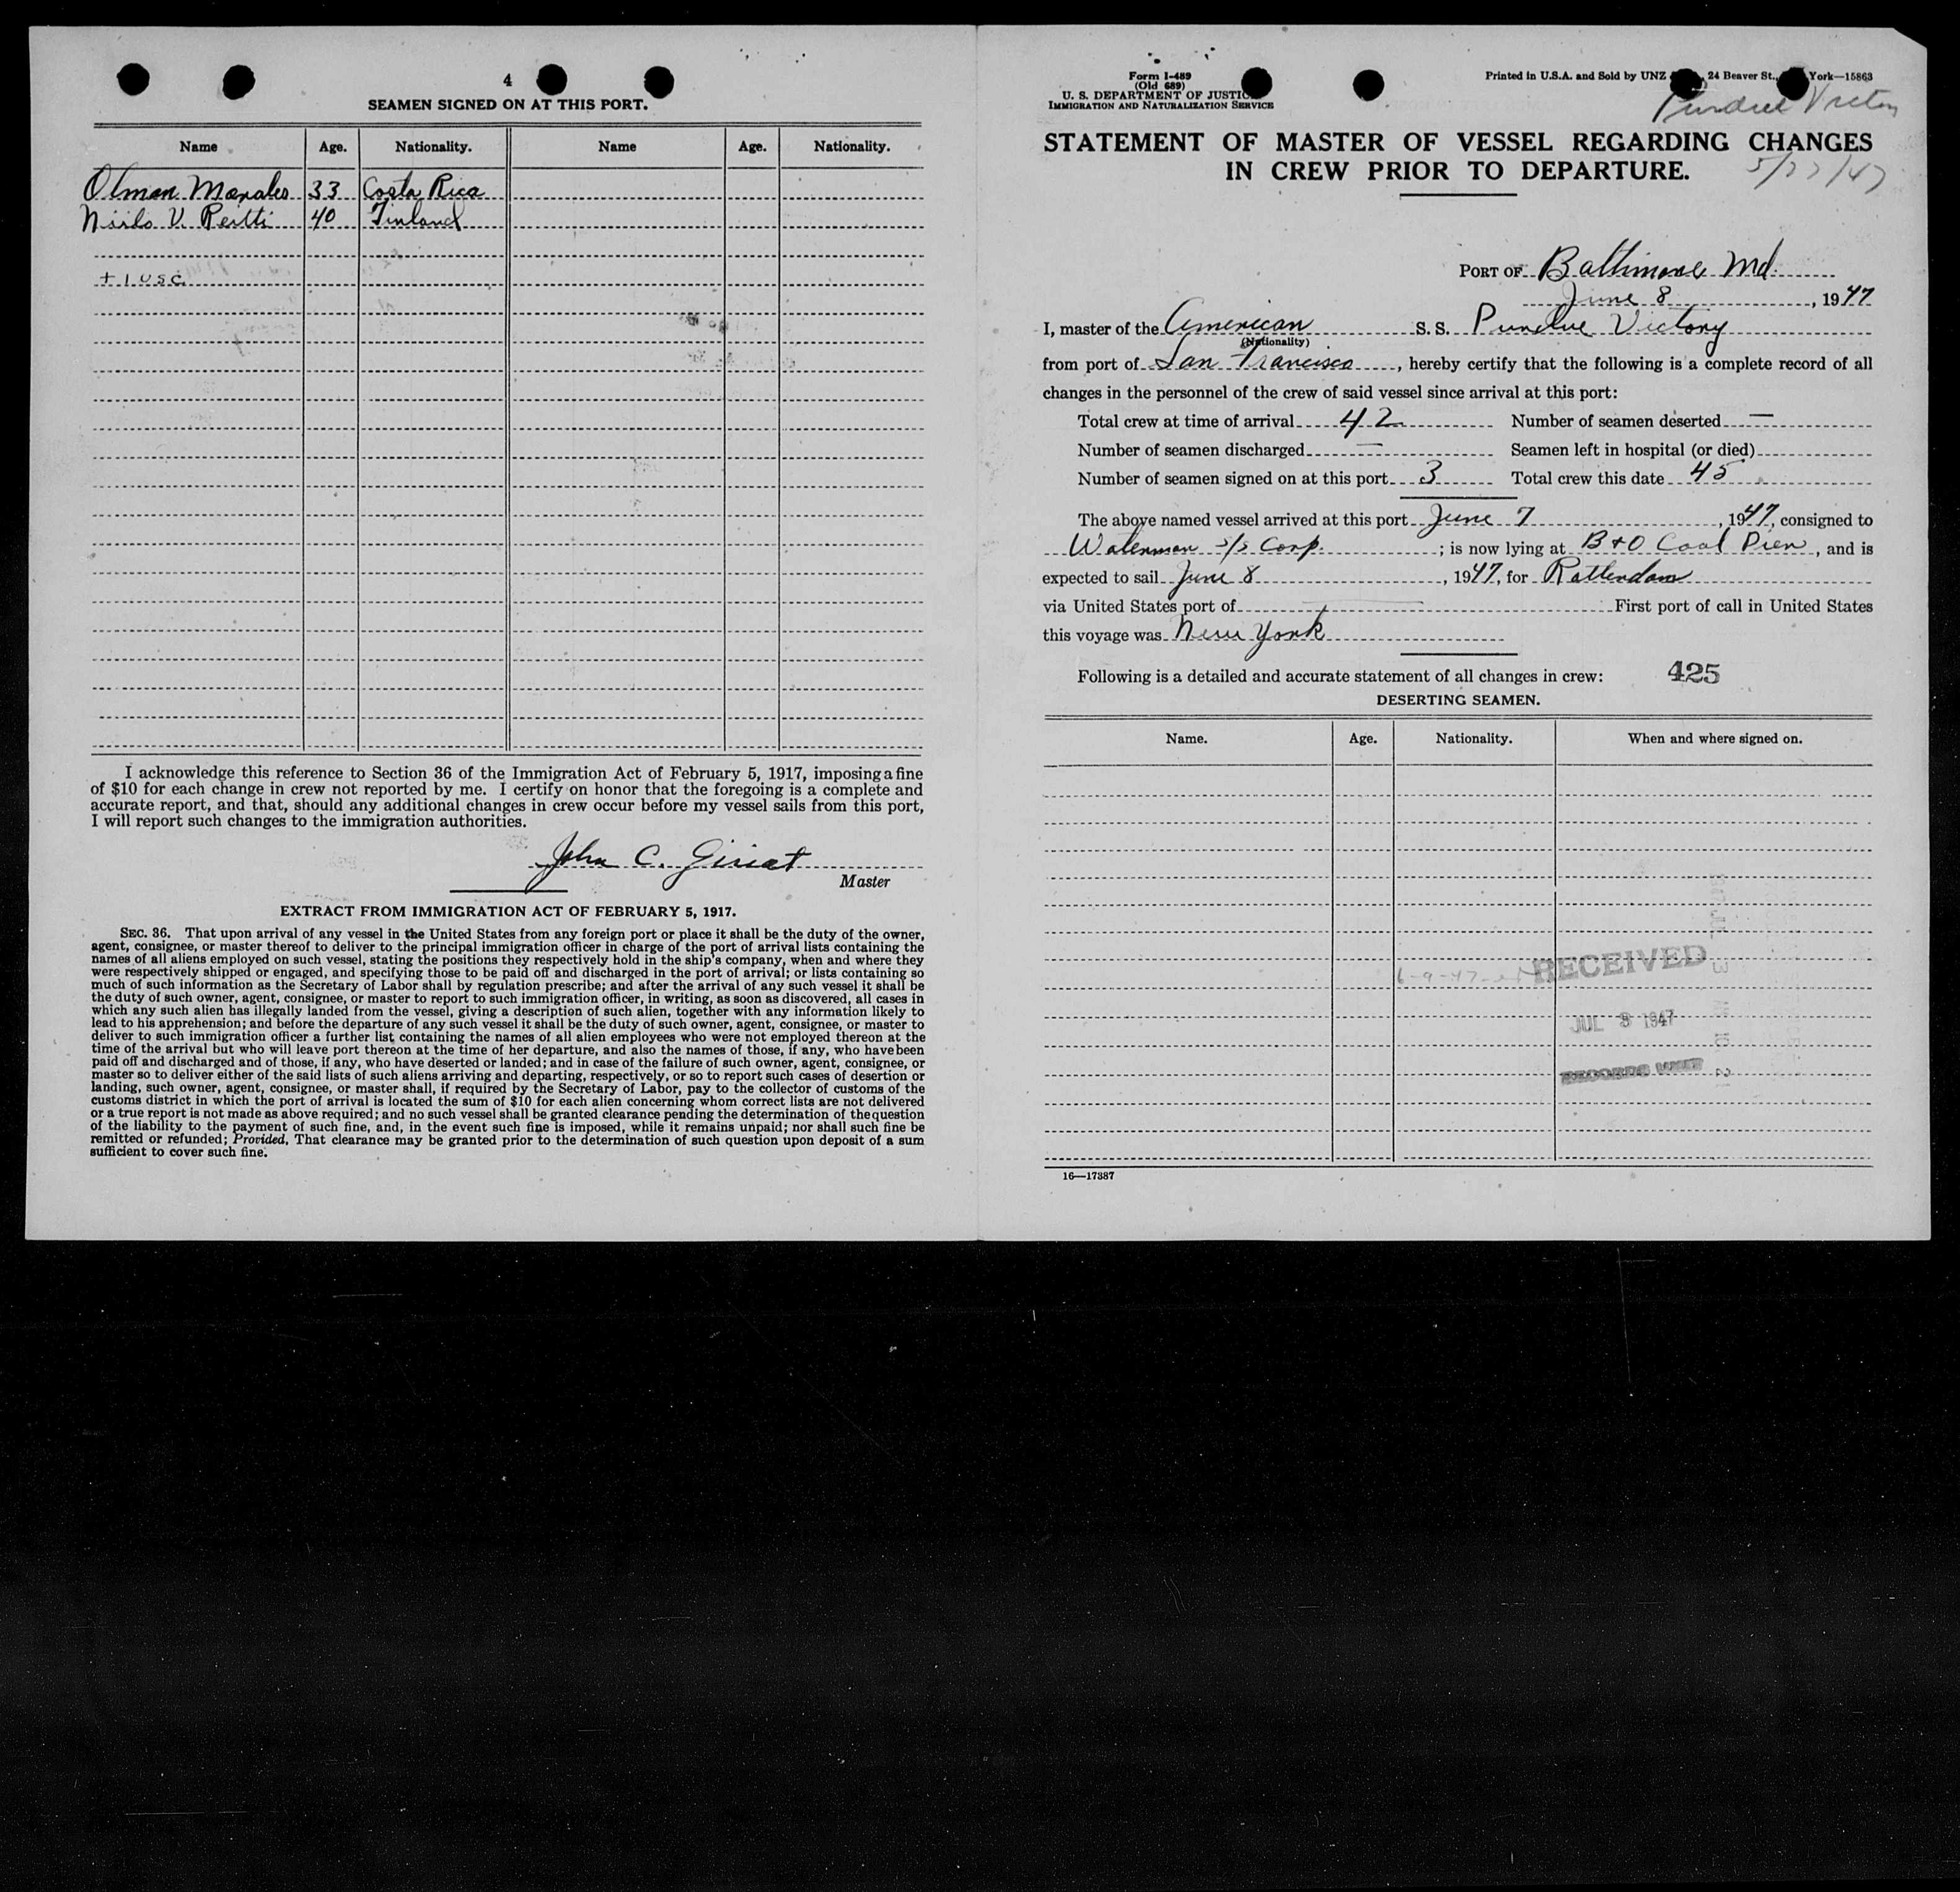 4
SEAMEN SIGNED ON AT THIS PORT.
Name Age. Nationality. Name Age. Nationality.
Olman Morales 33 Costa Rica
Niilo V. Reitti 40 Finland
+ 1 USC
I acknowledge this reference to Section 36 of the Immigration Act of February 5, 1917, imposing a fine
of $10 for each change in crew not reported by me. I certify on honor that the foregoing is a complete and
accurate report, and that, should any additional changes in crew occur before my vessel sails from this port,
I will report such changes to the immigration authorities.
John C.
Master
EXTRACT FROM IMMIGRATION ACT OF FEBRUARY 5, 1917.
SEC. 36. That upon arrival of any vessel in the United States from any foreign port or place it shall be the duty of the owner,
agent, consignee, or master thereof to deliver to the principal immigration officer in charge of the port of arrival lists containing the
names of all aliens employed on such vessel, stating the positions they respectively hold in the ship's company, when and where they
were respectively shipped or engaged, and specifying those to be paid off and discharged in the port of arrival; or lists containing so
much of such information as the Secretary of Labor shall by regulation prescribe; and after the arrival of any such vessel it shall be
the duty of such owner, agent, consignee, or master to report to such immigration officer, in writing, as soon as discovered, all cases in
which any such alien has illegally landed from the vessel, giving a description of such alien, together with any information likely to
lead to his apprehension; and before the departure of any such vessel it shall be the duty of such owner, agent, consignee, or master to
deliver to such immigration officer a further list containing the names of all alien employees who were not employed thereon at the
time of the arrival but who will leave port thereon at the time of her departure, and also the names of those, if any, who have been
paid off and discharged and of those, if any, who have deserted or landed; and in case of the failure of such owner, agent, consignee, or
master so to deliver either of the said lists of such aliens arriving and departing, respectively, or so to report such cases of desertion or
landing, such owner, agent, consignee, or master shall, if required by the Secretary of Labor, pay to the collector of customs of the
customs district in which the port of arrival is located the sum of $10 for each alien concerning whom correct lists are not delivered
or a true report is not made as above required; and no such vessel shall be granted clearance pending the determination of the question
of the liability to the payment of such fine, and, in the event such fine is imposed, while it remains unpaid; nor shall such fine be
remitted or refunded; Provided, That clearance may be granted prior to the determination of such question upon deposit of a sum
sufficient to cover such fine.
Form I-489
(Old 689)
U. S. DEPARTMENT OF JUSTIC
IMMIGRATION AND NATURALIZATION SERVICE
Printed in U.S.A. and Sold by UNZ 24 Beaver St., York—15863
Purdue Victory
STATEMENT OF MASTER OF VESSEL REGARDING CHANGES
IN CREW PRIOR TO DEPARTURE.
5/27/47
PORT OF Baltimore Md.
June 8, 1947
I, master of the American S. S. Purdue Victory
(Nationality)
from port of San Francisco, hereby certify that the following is a complete record of all
changes in the personnel of the crew of said vessel since arrival at this port:
Total crew at time of arrival 42 Number of seamen deserted —
Number of seamen discharged — Seamen left in hospital (or died)
Number of seamen signed on at this port 3 Total crew this date 45
The above named vessel arrived at this port June 7, 1947, consigned to
Waterman S/S Corp.; is now lying at B+O Coal Pier, and is
expected to sail June 8, 1947, for Rotterdam
via United States port of — First port of call in United States
this voyage was New York
Following is a detailed and accurate statement of all changes in crew: 425
DESERTING SEAMEN.
Name. Age. Nationality. When and where signed on.
6-9-47 RECEIVED
JUL 3 1947
RECORDS UNIT
16—17387